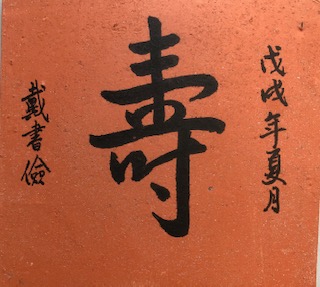 戊戌年夏月
壽
戴書儉